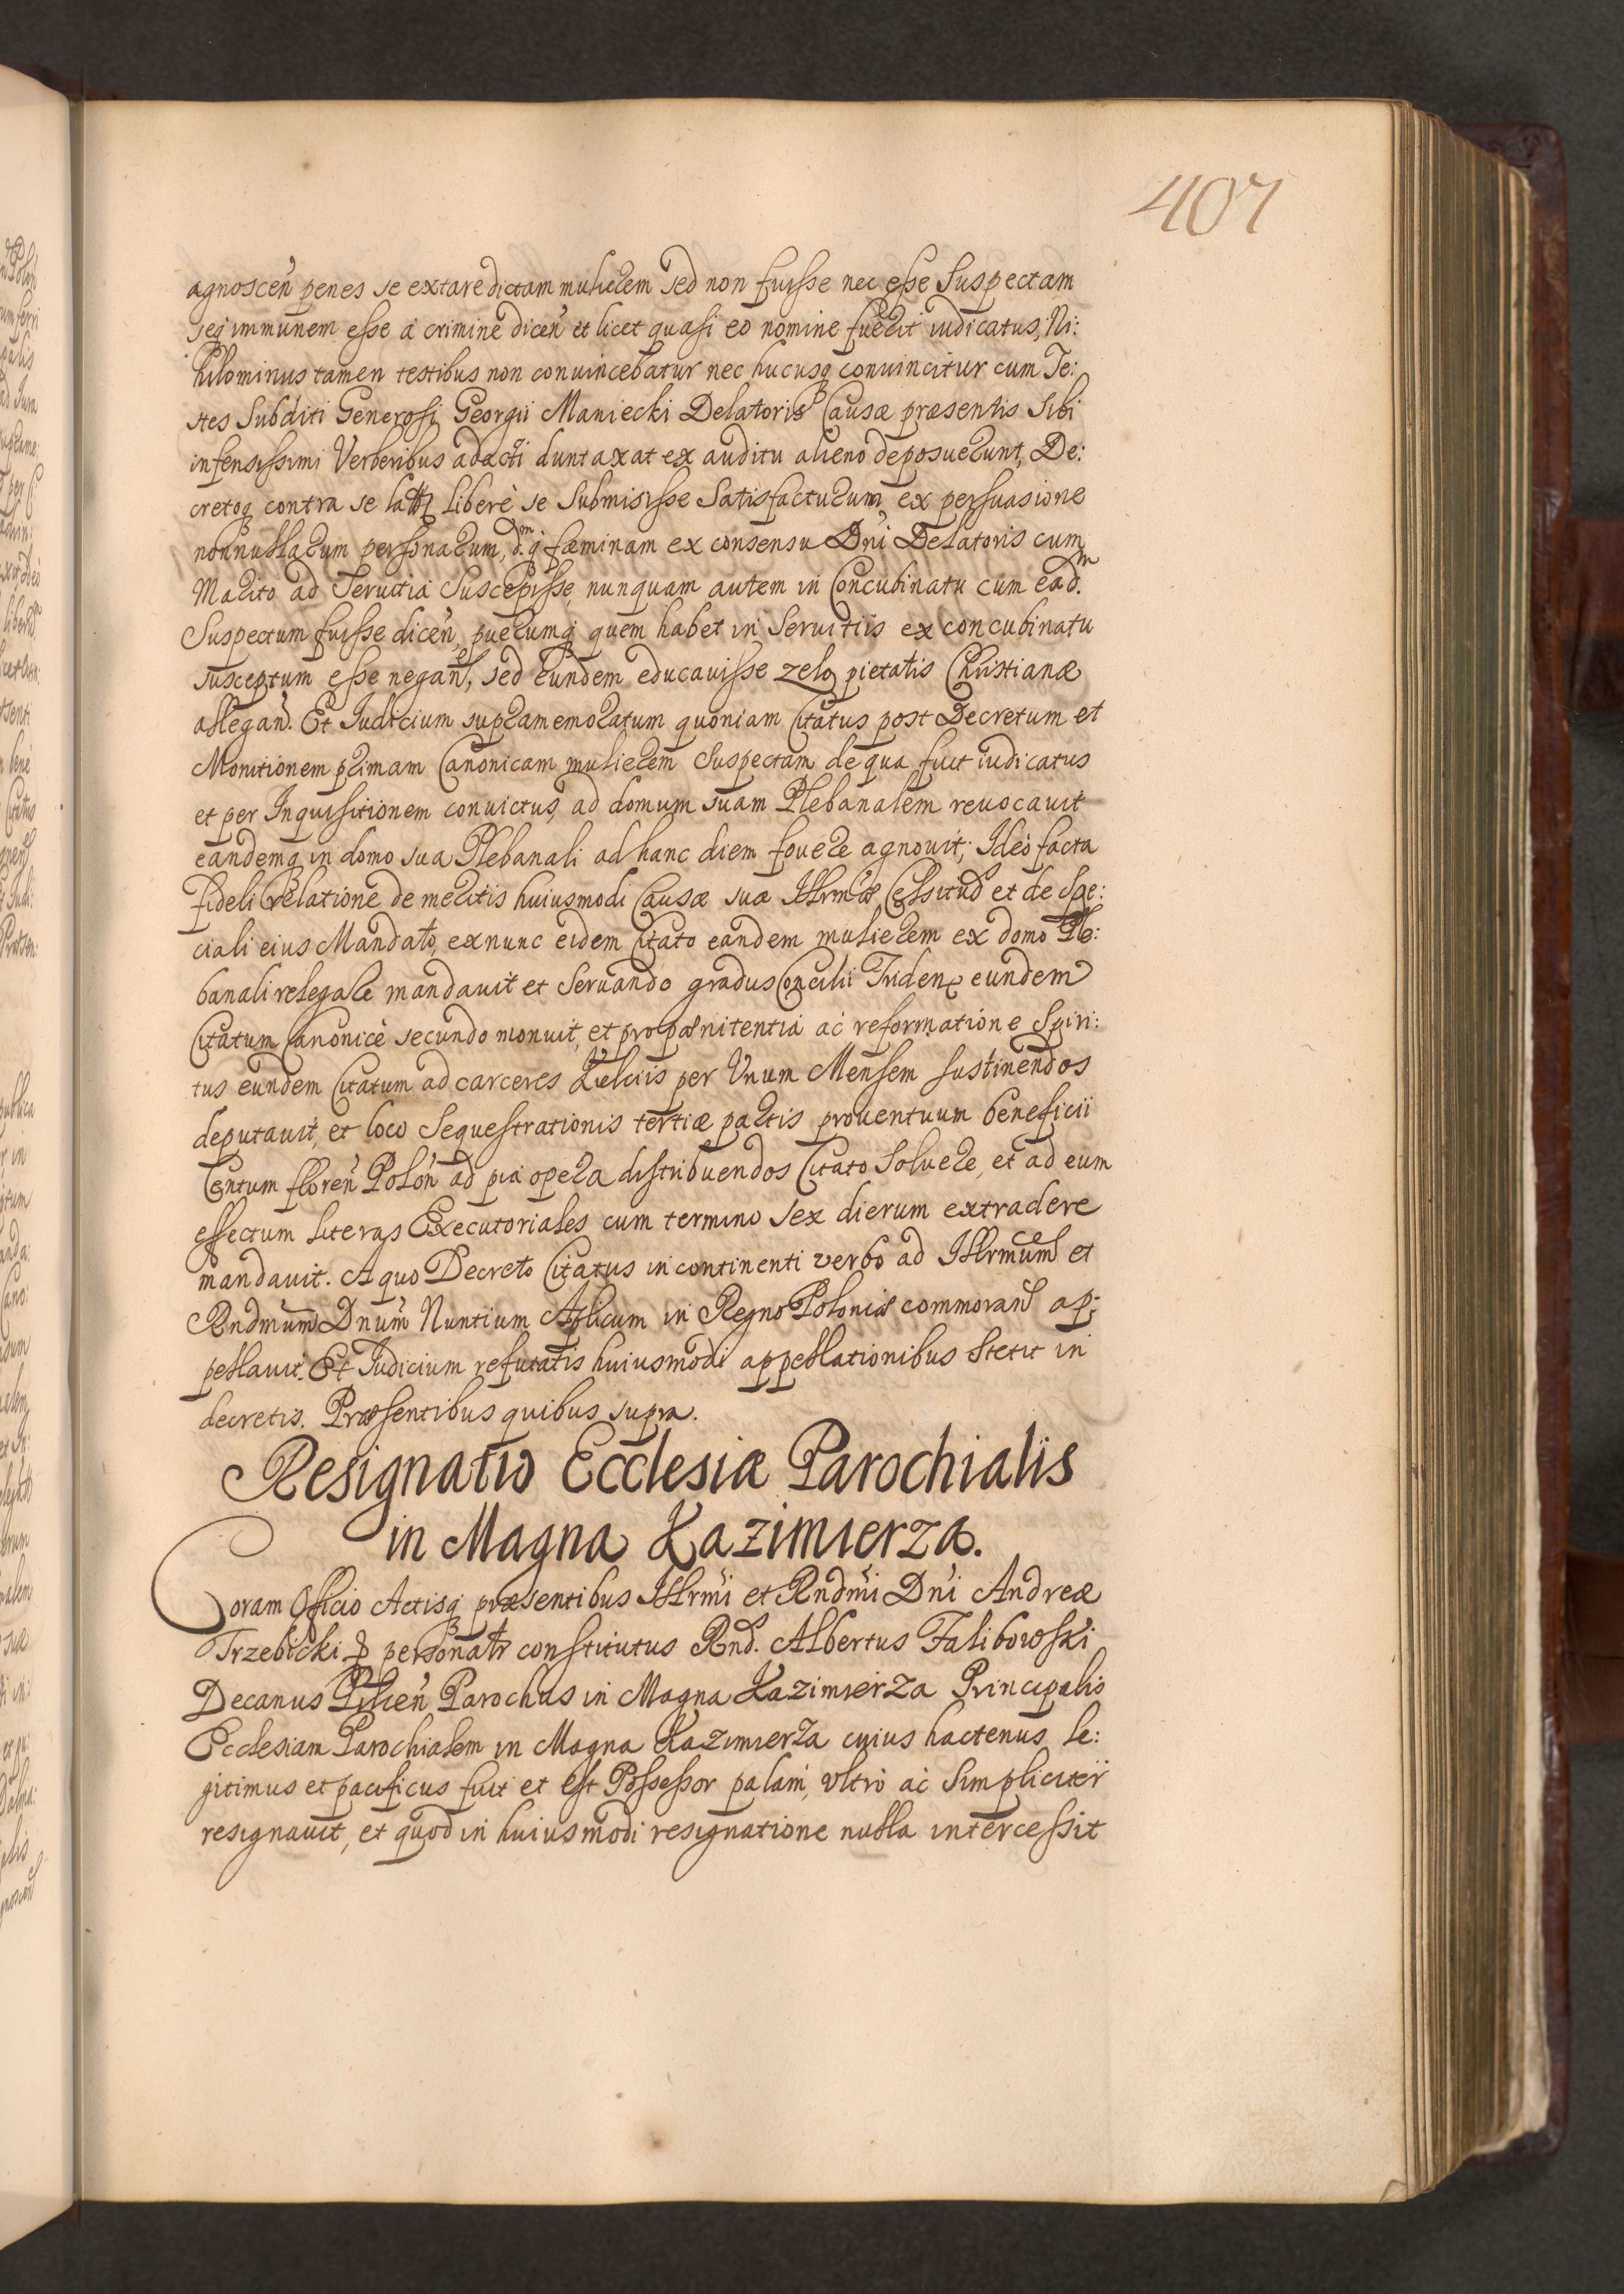 407
agnoscen̄ penes se extare dictam mulierem sed non fuisse nec esse Suspectam
seq immunem esse a crimine dicen̄ et licet quasi eo nomine fuerit iudicatus, Ni:
hilominus tamen testibus non convincebatur nec hucusq convincitur cum Te:
stes Subditi Generosi Georgii Maniecki Delatoris Causæ præsentis Sibi
infensissimi Verberibus adacti duntaxat ex auditu alieno deposuerunt, De:
cretoq contra se lato liberè se Submisisse Satisfacturum ex persuasione
nonnullarum personarum, fæminam ex consensu Dn̄i Delatoris cum
Marito ad Servitia Suscepisse, nunquam autem in Concubinatu cum ead.m
Suspectum fuisse dicen̄, puerumq quem habet in Servitiis ex concubinatu
susceptum esse negan̄, sed eundem educavisse zelo pietatis Christianæ
allegan̄. Et Iudicium supramemoratum quoniam Citatus post Decretum et
Monitionem primam Canonicam mulierem Suspectam de qua fuit iudicatus
et per Inquisitionem convictus, ad domum suam Plebanalem revocavit
eandemq in domo sua Plebanali ad hanc diem fovere agnovit; Ideò facta
fideli relatione de meritis huiusmodi Causæ suæ Illrmæ Celsitud et de Spe:
ciali eius Mandato, exnunc eidem Citato eandem mulierem ex domo Ple:
banali relegare mandavit et Servando gradus Concilii Triden eundem
Citatum Canonicè secundo monuit, et pro pænitentia ac reformatione Spiri:
tus eundem Citatum ad carceres Kielciis per Vnum Mensem sustinendos
deputavit, et loco Sequestrationis tertiæ partis proventuum beneficii
Centum floren̄ Polon̄ ad pia opera distribuendos Citato Solvere, et ad eum
effectum literas Executoriales cum termino sex dierum extradere
mandavit. A quo Decreto Citatus incontinenti verbo ad Illrmum et
Rndmum Dnum Nuntium Aplicum in Regno Poloniæ commoran̄ ap:
pellavit. Et Iudicium refutatis huiusmodi appellationibus Stetit in
decretis. Præsentibus quibus supra.
Resignatio Ecclesiæ Parochialis
in Magna Kazimierza.
Coram Officio Actisq præsentibus Illrmi et Rndmi Dn̄i Andreæ
Trzebicki personalr constitutus Rnd. Albertus Falibowski
Decanus Pilicen̄ Parochus in Magna Kazimierza Principalis
Ecclesiam Parochialem in Magna Kazimierza cuius hactenus le:
gitimus et pacificus fuit et est Possessor palam, vltro ac Simpliciter
resignavit, et quod in huiusmodi resignatione nulla intercessit